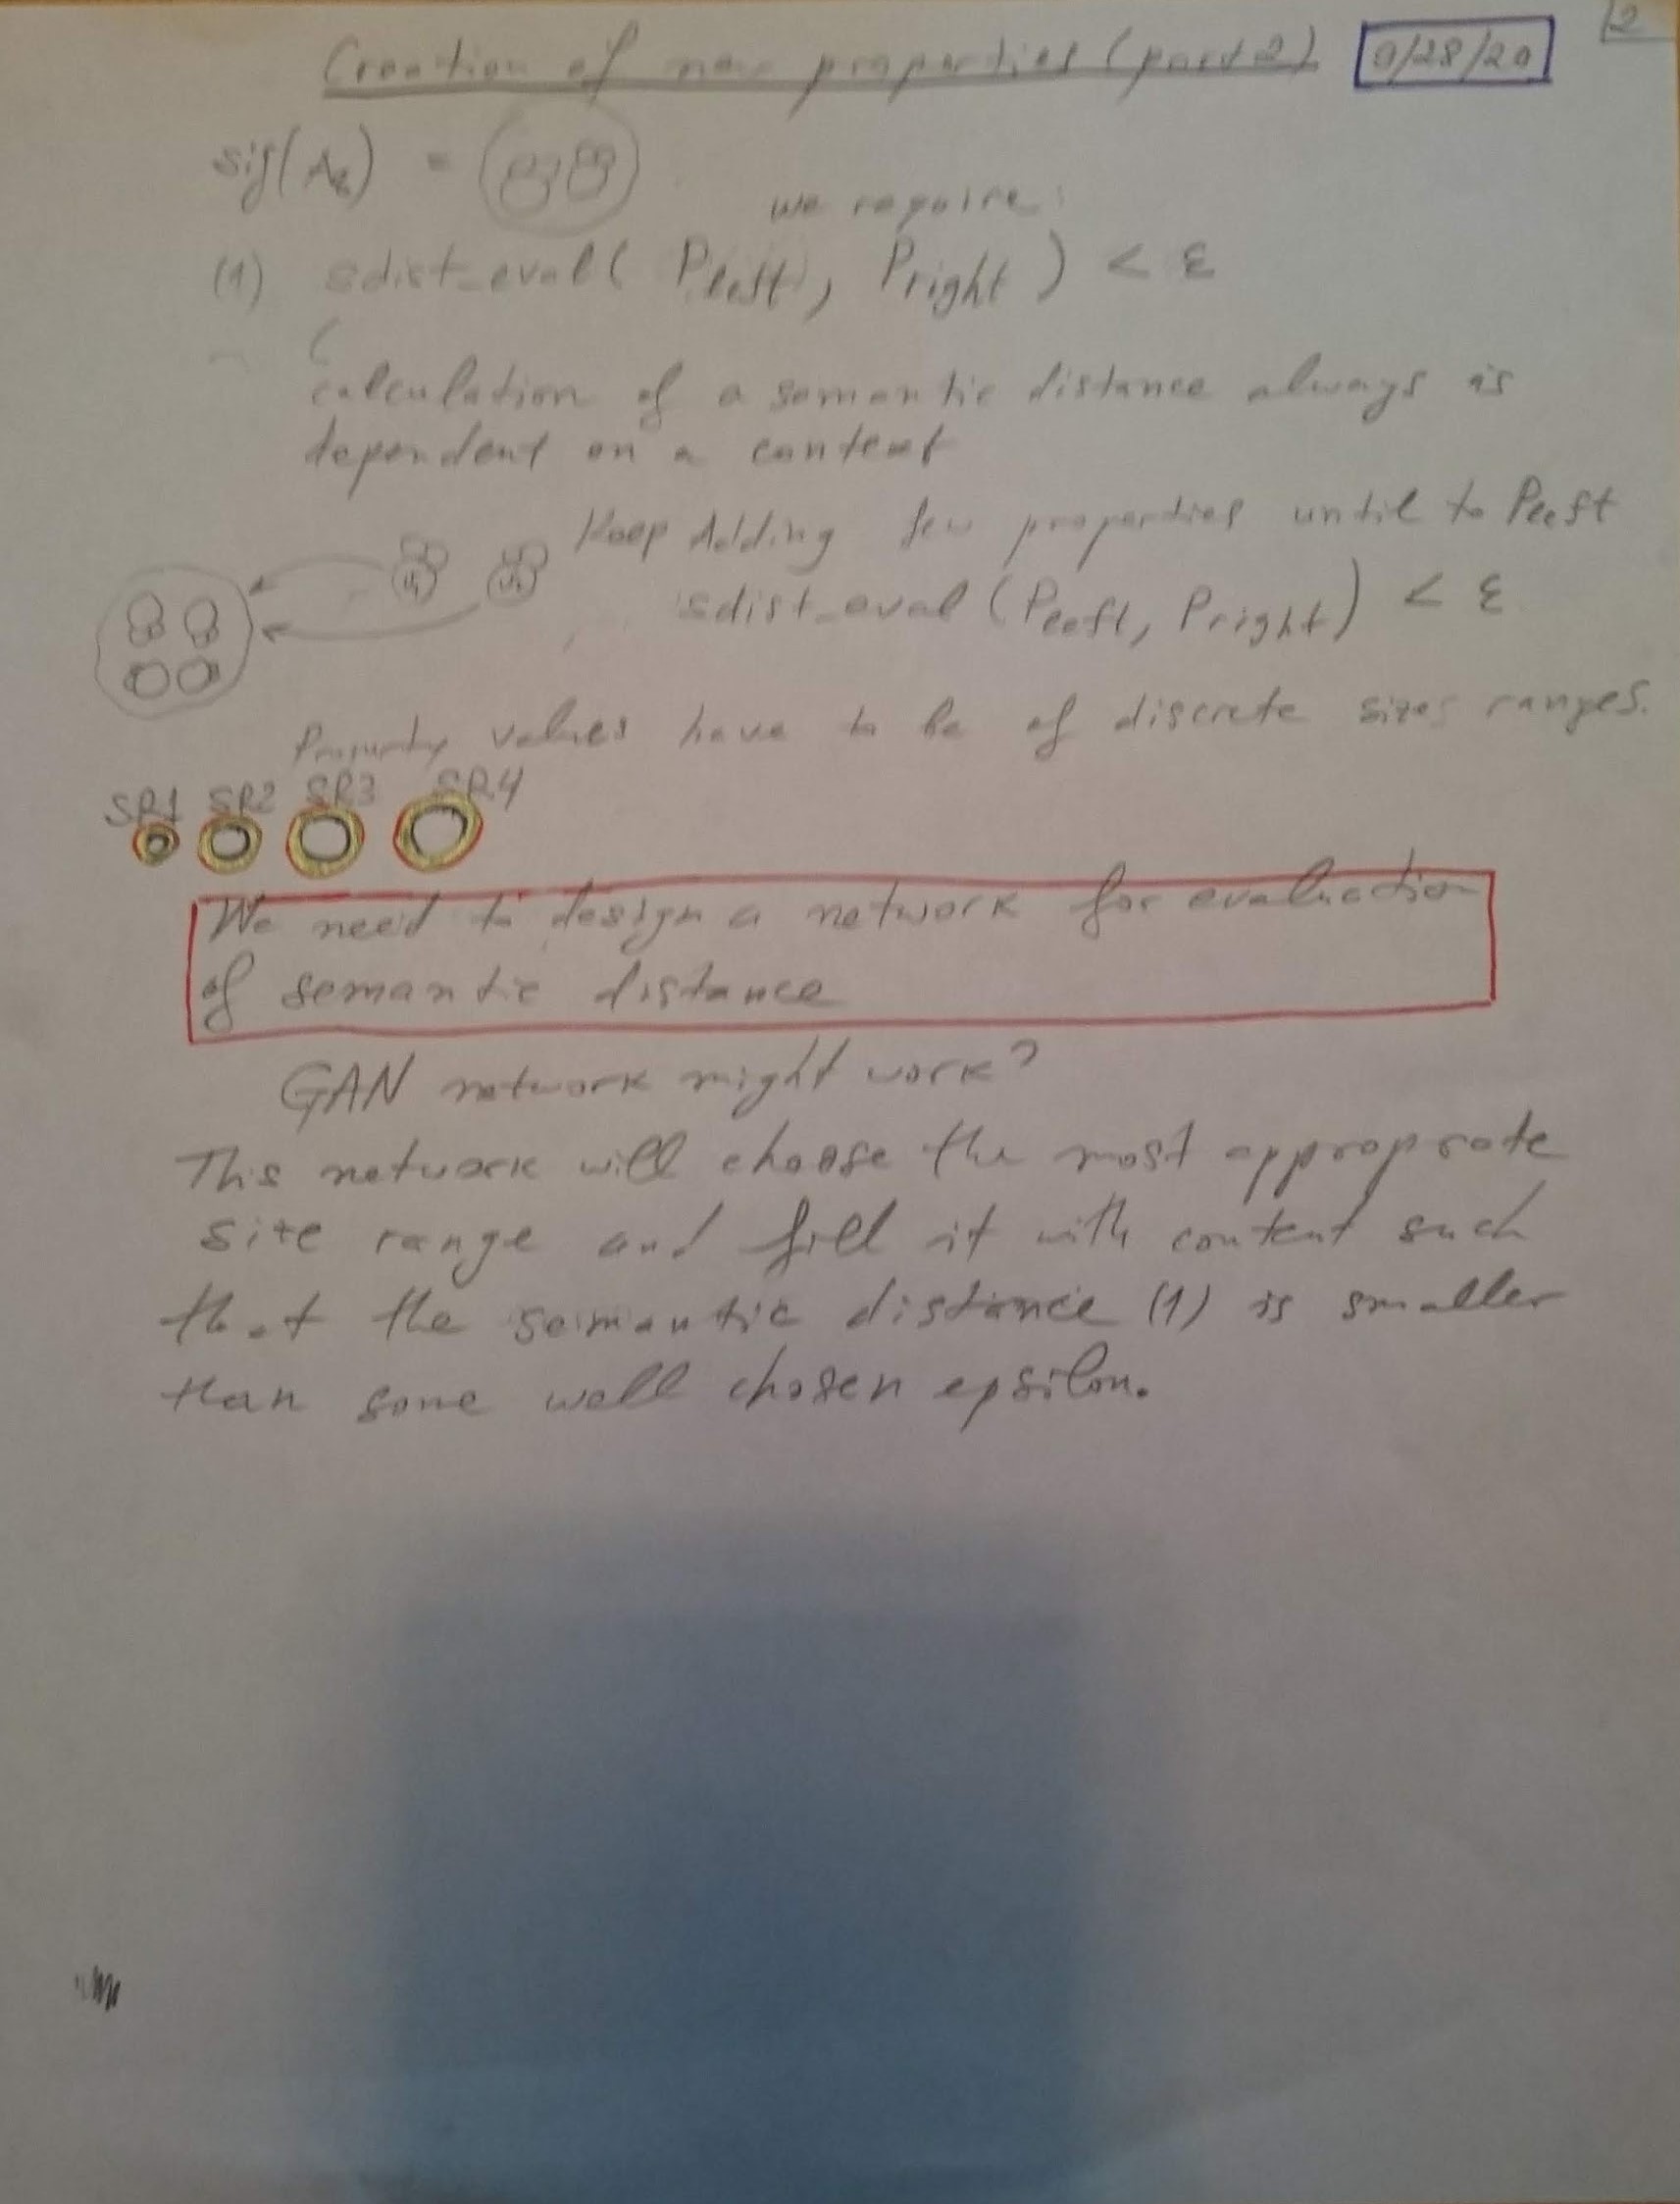 2
Creation of new properties (part 2) 9/28/20
sig(A₂) =
we require:
(1) sdist_eval( Pleft, Pright ) < ε
calculation of a semantic distance always is
dependent on a context
Keep Adding few properties until to Pleft
sdist_eval (Pleft, Pright) < ε
Property values have to be of discrete sizes ranges.
SR1 SR2 SR3 SR4
We need to design a network for evaluation
of semantic distance
GAN network might work?
This network will choose the most approprate
size range and fill it with content such
that the semantic distance (1) is smaller
than some well chosen epsilon.